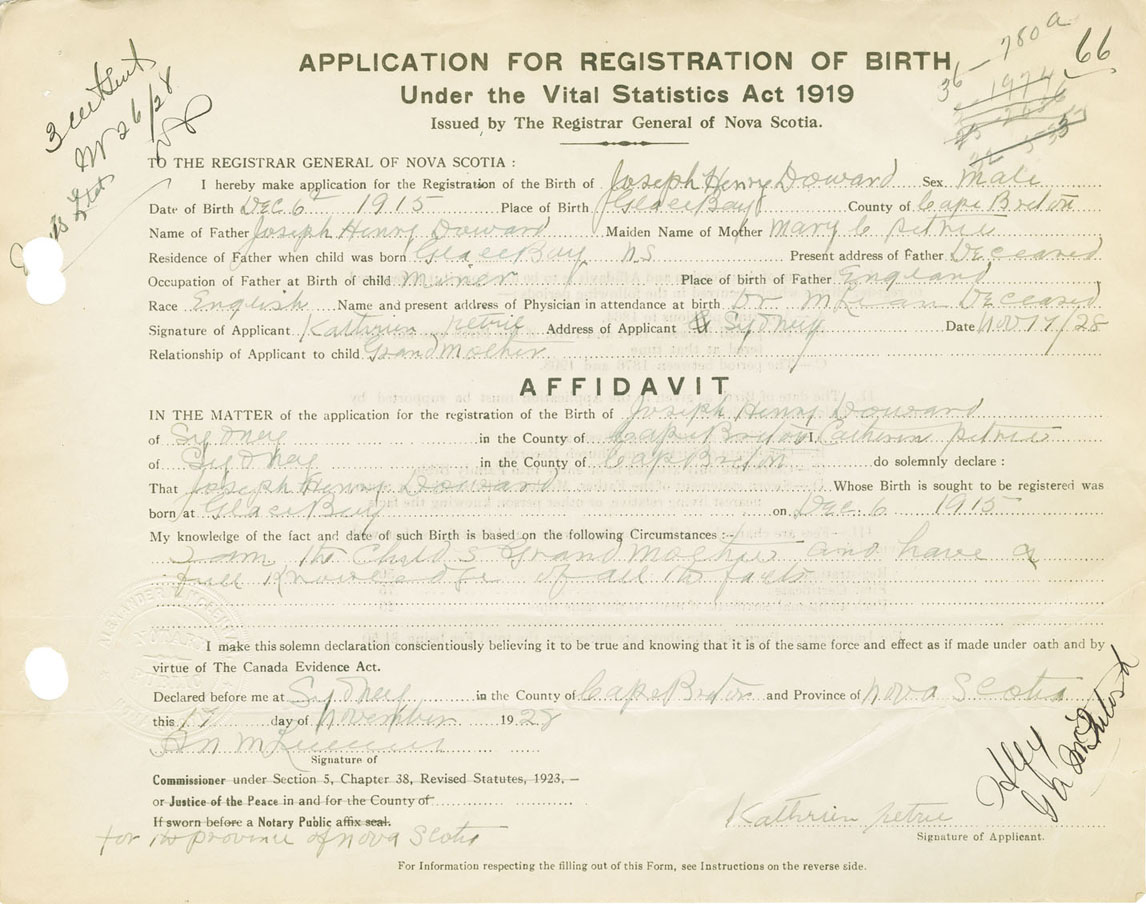 36 - 780a
66
3 cert sent
N 26/28
APPLICATION FOR REGISTRATION OF BIRTH
Under the Vital Statistics Act 1919
Issued by The Registrar General of Nova Scotia.
TO THE REGISTRAR GENERAL OF NOVA SCOTIA :
I hereby make application for the Registration of the Birth of Joseph Henry Doward Sex Male
Date of Birth Dec 6th 1915 Place of Birth Glace Bay County of Cape Breton
Name of Father Joseph Henry Doward Maiden Name of Mother Mary C Petrie
Residence of Father when child was born Glace Bay N S Present address of Father Deceased
Occupation of Father at Birth of child Miner Place of birth of Father England
Race English Name and present address of Physician in attendance at birth Dr McKean Deceased
Signature of Applicant Kathrien Petrie Address of Applicant Sydney Date Nov 17/28
Relationship of Applicant to child Grand Mother
AFFIDAVIT
IN THE MATTER of the application for the registration of the Birth of Joseph Henry Doward
of Sydney in the County of Cape Breton I, Catherien Petrie
of Sydney in the County of Cape Breton do solemnly declare :
That Joseph Henry Doward Whose Birth is sought to be registered was
born at Glace Bay on Dec. 6 1915
My knowledge of the fact and date of such Birth is based on the following Circumstances :-
I am the Child s Grand Mother and have a
full Knowledge of all the facts
I make this solemn declaration conscientiously believing it to be true and knowing that it is of the same force and effect as if made under oath and by
virtue of The Canada Evidence Act.
Declared before me at Sydney in the County of Cape Breton and Province of Nova Scotia
this 17 day of November 1928
Signature of
Commissioner under Section 5, Chapter 38, Revised Statutes, 1923, —
or Justice of the Peace in and for the County of
If sworn before a Notary Public affix seal.
for the province of Nova Scotia
Kathrien Petrie
Signature of Applicant.
McIntosh
For Information respecting the filling out of this Form, see Instructions on the reverse side.